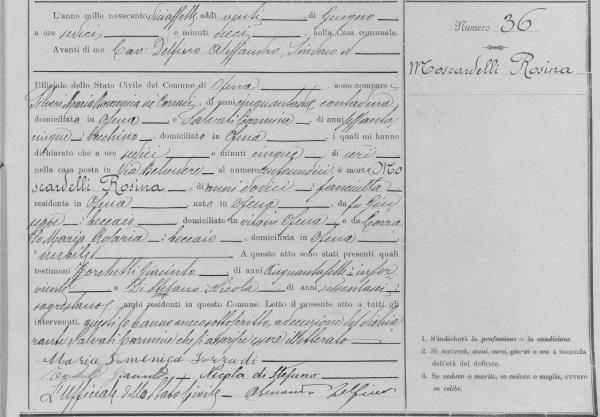 L'anno millenovecento diciassette, addì venti di Giugno
a ore sedici e minuti dieci, nella Casa comunale.
Avanti di me Cav. Delfino Alessandro, Sindaco
Uffiziale dello Stato Civile del Comune di Ofena, sono comparsi
Maria Domenica di Corrado, di anni cinquanta, contadina
domiciliata in Ofena e Salvati Carmine, di anni sessanta
cinque, becchino, domiciliato in Ofena, i quali mi hanno
dichiarato che a ore sedici e minuti cinque di ieri
nella casa posta in Via Belvedere al numero, è morta Mo
scardelli Rosina di anni dodici, fanciulla
residente in Ofena, nata in Ofena, da fu Giu
seppe, beccaio, domiciliato in vita in Ofena e da Corra
Maria Rosaria, beccaio, domiciliata in Ofena
nubile A questo atto sono stati presenti quali
testimoni Giacinto di anni cinquantasette, inser
viente e Di Stefano Nicola di anni
sagrestano, ambi residenti in questo Comune. Letto il presente atto a tutti gli
intervenuti, questi lo hanno meco sottoscritto, ad eccezione del dichia
rante Salvati Carmine che essere illetterato
Maria Domenica
Giacinto Nicola di Stefano
L'Ufficiale dello Stato Civile Alessandro Delfino
Numero 36
Moscardelli Rosina
1. S'indicherà la professione o la condizione.
2. Si scriverà, anni, mesi, giorni o ore a seconda
dell'età del defunto.
3. Se vedovo o marito, se vedova o moglie, ovvero
se celibe.